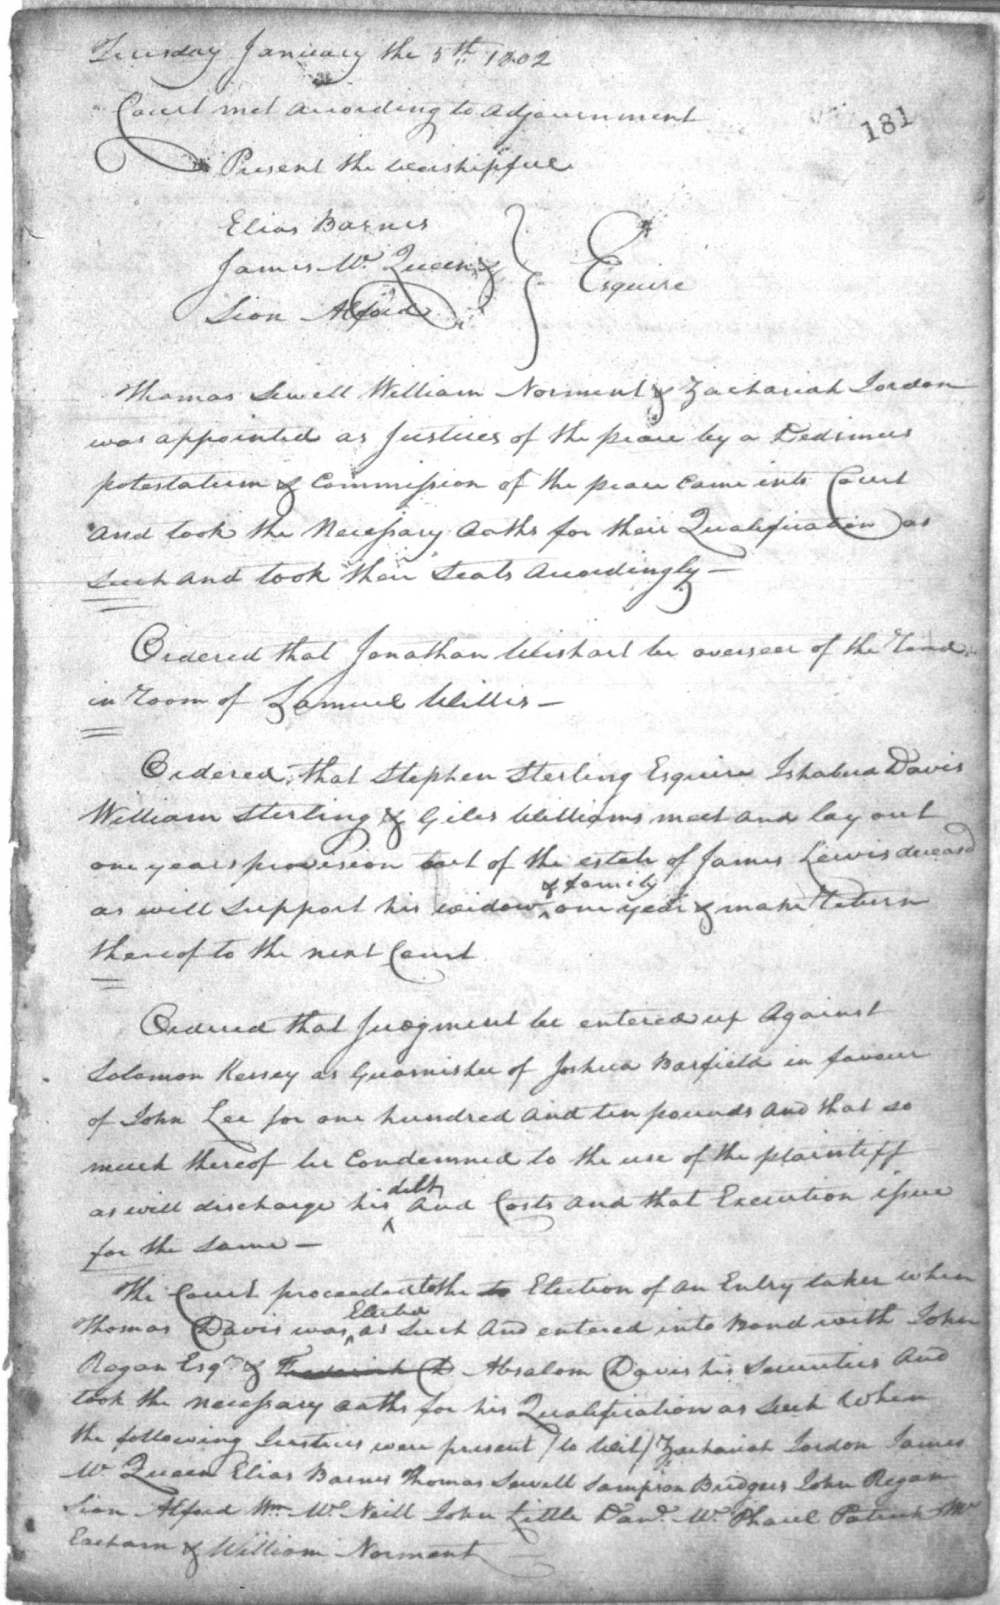 Tuesday January the 5th 1802
Court met according to adjournment
181
Present the worshipfull
Elias Barnes
James Mc Queen &
Sion Alford
} Esquire
Thomas Sewell William Norment & Zachariah Jordon
was appointed as Justices of the peace by a Dedimus
potestatum & Commission of the peace Came into Court
and took the Necessary oaths for their Qualification as
Such and took their Seats accordingly —
Ordered that Jonathan Wishart be overseer of the road
in room of Samuel Willis —
Ordered that Stephen Sterling Esquire Ishabud Davis
William Sterling & Giles Williams meet and lay out
one years provision out of the estate of James Lewis deceasd
& family
as will support his widow ^ one year & make return
thereof to the next Court
Ordered that Judgment be entered up Against
Solomon Kersey as Guarnishee of Joshua Barfield in favour
of John Lee for one hundred and ten pounds and that so
much thereof be Condemned to the use of the plaintiff
debt
as will discharge his ^ and Costs and that Execution issue
for the same —
The Court proceeded to the to Election of an Entry taker when
Elected
Thomas Davis was ^ as Such and entered into Bond with John
Regan Esqr & Frederick D Absalom Davis his Securities and
took the necessary oaths for his Qualification as Such When
the following Justices were present (to Wit) Zachariah Jordon James
Mc Queen Elias Barnes Thomas Sewell Sampson Bridgers John Regan
Sion Alford Wm Mc Neill John Little Dand Mc Phaul Patrick Mc
Eacharn & William Norment